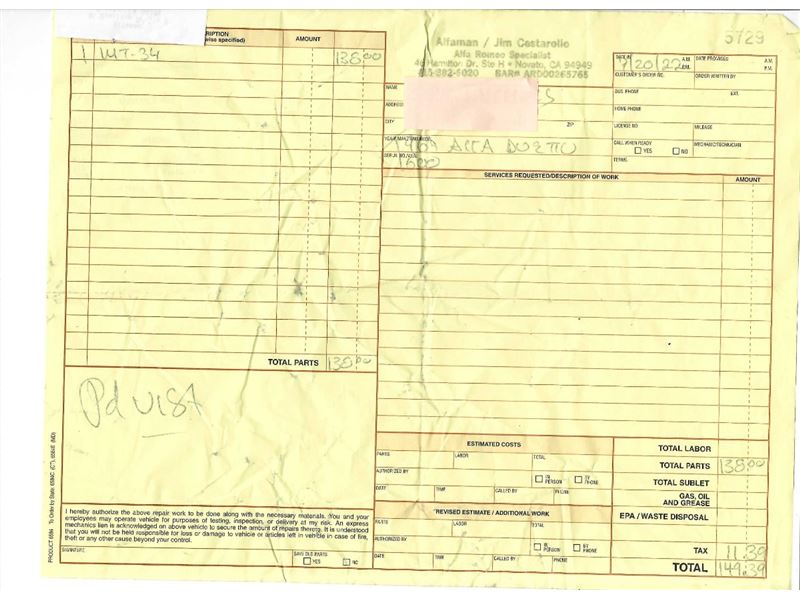 5729
Alfaman / Jim Costarello
Alfa Romeo Specialist
46 Hamilton Dr. Ste H • Novato, CA 94949
415-382-5020 BAR# ARD00265765
RIPTION
wise specified)
AMOUNT
1 MT-34 138.00
TOTAL PARTS 138.00
Pd VISA
I hereby authorize the above repair work to be done along with the necessary materials. You and your
employees may operate vehicle for purposes of testing, inspection, or delivery at my risk. An express
mechanics lien is acknowledged on above vehicle to secure the amount of repairs thereto. It is understood
that you will not be held responsible for loss or damage to vehicle or articles left in vehicle in case of fire,
theft or any other cause beyond your control.
SIGNATURE
SAVE OLD PARTS
YES NO
DATE IN 7/20/22 A.M. P.M.
DATE PROMISED A.M. P.M.
CUSTOMER'S ORDER NO.
ORDER WRITTEN BY
NAME
BUS. PHONE EXT.
ADDRESS
HOME PHONE
CITY ZIP
LICENSE NO. MILEAGE
1969 ALFA DUETTO
CALL WHEN READY
YES NO
MECHANIC/TECHNICIAN
SERIAL NO.
TERMS
SERVICES REQUESTED/DESCRIPTION OF WORK AMOUNT
ESTIMATED COSTS
PARTS LABOR TOTAL
AUTHORIZED BY
IN PERSON BY PHONE
DATE TIME CALLED BY
*REVISED ESTIMATE / ADDITIONAL WORK
PARTS LABOR TOTAL
AUTHORIZED BY
IN PERSON BY PHONE
DATE TIME CALLED BY PHONE
TOTAL LABOR
TOTAL PARTS 138.00
TOTAL SUBLET
GAS, OIL
AND GREASE
EPA / WASTE DISPOSAL
TAX 11.39
TOTAL 149.39